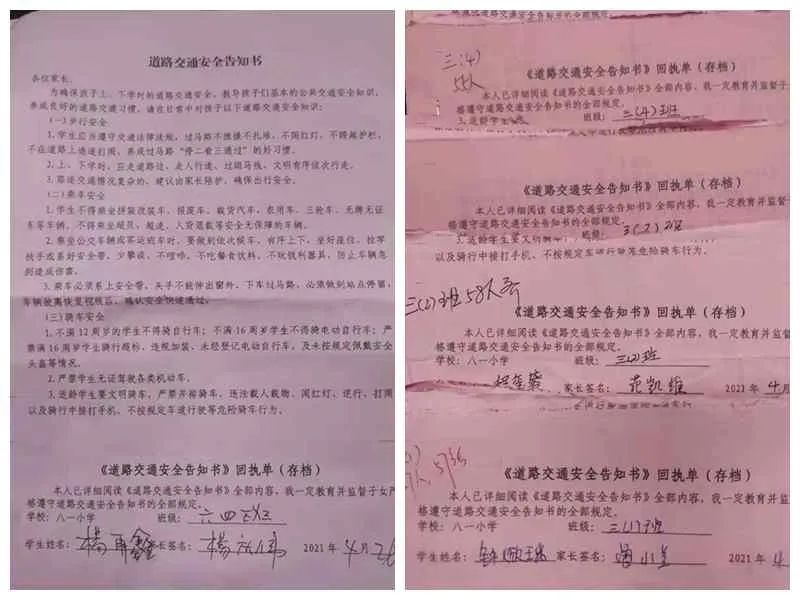 道路交通安全告知书
各位家长:
为确保孩子上、下学时的道路交通安全,教导孩子们基本的公共交通安全知识,
养成良好的道路交通习惯,请在日常中对孩子以下道路交通安全知识:
(一)步行安全
1.学生应当遵守交通法律法规,过马路不拥挤不扎堆,不闯红灯,不跨越护栏,
不在道路上追逐打闹,养成过马路“停二看三通过”的好习惯。
2.上、下学时,应走道路边,走人行道,过斑马线,文明有序依次行走。
3.路途交通情况复杂的,建议由家长陪护,确保出行安全。
(二)乘车安全
1.学生不得乘坐拼装改装车、报废车、载货汽车、农用车、三轮车、无牌无证
车等车辆,不得乘坐超员、超速、人货混载等安全无保障的车辆。
2.乘坐公交车辆或客运成车时,要做到依次候车,有序上下,坐好座位,拉等
扶手或系好安全带,少攀谈,不喧哗,不吃餐食饮料,不玩锐利器具,防止车辆急
刹造成伤害。
3.乘车必须系上安全带,头手不能伸出窗外,下车过马路,必须做到站点停留,
车辆驶离恢复视线后,确认安全快速通过。
(三)骑车安全
1.不满12周岁的学生不得骑自行车;不满16周岁学生不得骑电动自行车;严
禁满16周岁学生骑行超标、违规加装、未经登记电动自行车,及未按规定佩戴安全
头盔等情况。
2.严禁学生无证驾驶各类机动车。
3.适龄学生要文明骑车,严禁并排骑车,违法载人载物、闯红灯、逆行、打闹
以及骑行中接打手机、不按规定车道行驶等危险骑车行为。
《道路交通安全告知书》回执单(存档)
本人已详细阅读《道路交通安全告知书》全部内容,我一定教育并监督子女严
格遵守道路交通安全告知书的全部规定。
学校:八一小学 班级:六四班
学生姓名: 杨 鑫 家长签名: 杨 2021年4月26
三(4)
《道路交通安全告知书》回执单(存档)
本人已详细阅读《道路交通安全告知书》全部内容,我一定教育并监督
格遵守道路交通安全告知书的全部规定。
班级: 三(4)班
《道路交通安全告知书》回执单(存档)
本人已详细阅读《道路交通安全告知书》全部内容,我一定教育并监督子
格遵守道路交通安全告知书的全部规定。
3.适龄学生要文明骑车 班级: 3(2)班
以及骑行中接打手机、不按规定车道行驶危险骑车行为。
三(2)班58人齐
《道路交通安全告知书》回执单(存档)
本人已详细阅读《道路交通安全告知书》全部内容,我一定教育并监督
格遵守道路交通安全告知书的全部规定。
学校:八一小学 班级: 三(2)班
家长签名: 范凯维 2021年4月
《道路交通安全告知书》回执单(存档)
本人已详细阅读《道路交通安全告知书》全部内容,我一定教育并监督
格遵守道路交通安全告知书的全部规定。
学校:八一小学 班级: 三(1)班
学生姓名: 家长签名: 2021年4